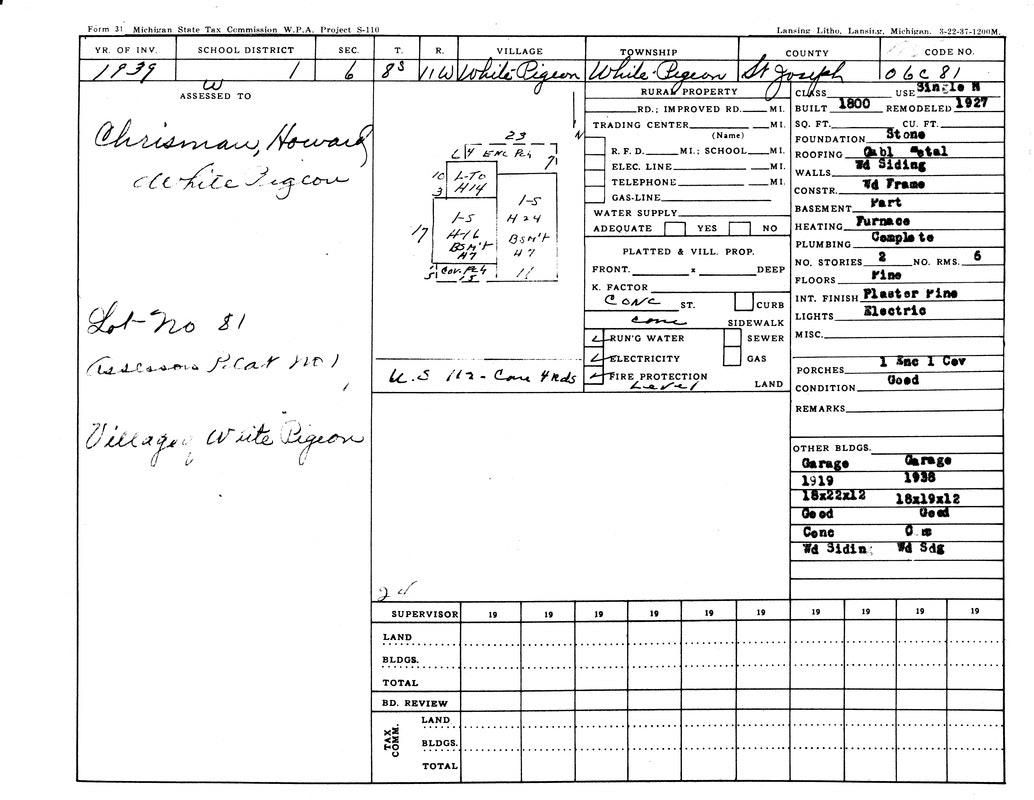 Form 31 Michigan State Tax Commission W.P.A. Project S-110
Lansing Litho, Lansing, Michigan. 3-22-37-1200M.
YR. OF INV. SCHOOL DISTRICT SEC. T. R. VILLAGE TOWNSHIP COUNTY CODE NO.
1939 W 1 6 8S 11W White Pigeon White Pigeon St Joseph 06C 81
ASSESSED TO
Chrisman, Howard
White Pigeon
Lot No 81
Assessors Plat No 1
Village of White Pigeon
N
23
6 4 ENC PCH 7
10 L-TO
3 H14
1-S
H 24
BSM'T
H 7
11
17
1-S
H-16
BSM'T
H7
5 COV. PCH
15
U.S 112 - Conc 4 Rds
RURAL PROPERTY
RD.; IMPROVED RD. MI.
TRADING CENTER MI.
(Name)
R. F. D. MI.; SCHOOL MI.
ELEC. LINE MI.
TELEPHONE MI.
GAS-LINE
WATER SUPPLY
ADEQUATE YES NO
PLATTED & VILL. PROP.
FRONT. x DEEP
K. FACTOR
CONC ST. CURB
Conc SIDEWALK
RUN'G WATER SEWER
ELECTRICITY GAS
FIRE PROTECTION
Level LAND
CLASS USE Single N
BUILT 1800 REMODELED 1927
SQ. FT. CU. FT.
FOUNDATION Stone
ROOFING Gabl Metal
WALLS Wd Siding
CONSTR. Wd Frame
BASEMENT Part
HEATING Furnace
PLUMBING Complete
NO. STORIES 2 NO. RMS. 6
FLOORS Pine
INT. FINISH Plaster Pine
LIGHTS Electric
MISC.
PORCHES 1 Enc 1 Cov
CONDITION Good
REMARKS
OTHER BLDGS.
Garage Garage
1919 1938
18x22x12 18x19x12
Good Good
Conc
Wd Siding Wd Sdg
SUPERVISOR 19 19 19 19 19 19 19 19 19 19
LAND
BLDGS.
TOTAL
BD. REVIEW
TAX COMM.
LAND
BLDGS.
TOTAL